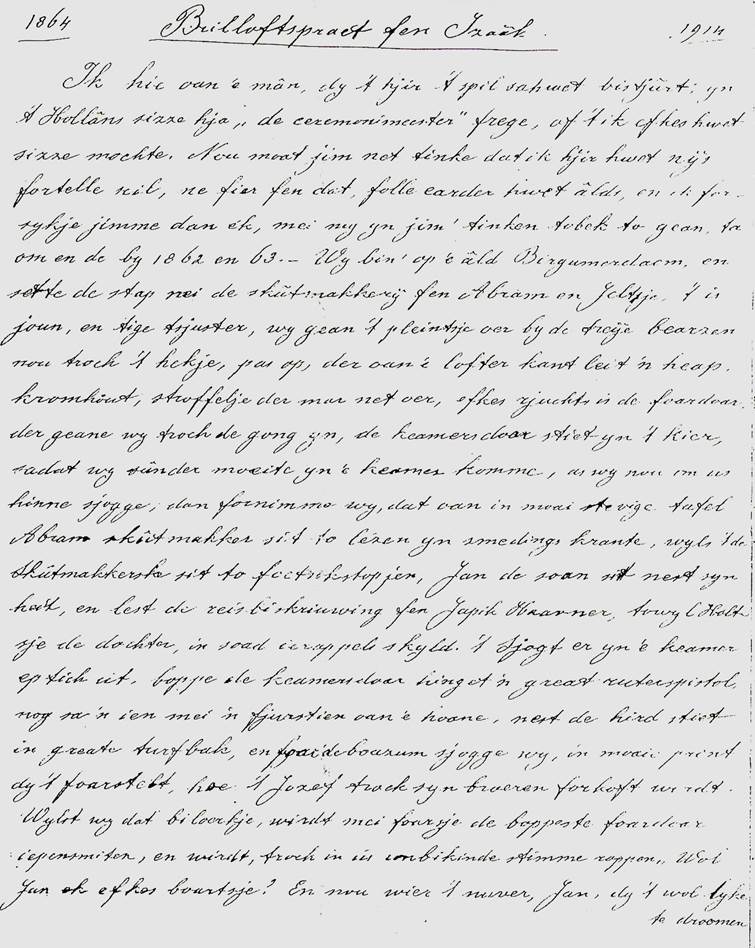 1864 Brilloftspraet fen Izaäk. 1914
Ik hie oan 'e mân, dy 't hjir 't spil sahwet bistjûrt; yn
't Hollâns sizze hja „de ceremonimeester" frege, of 't ik efkes hwet
sizze mochte. Nou moat jim net tinke dat ik hjir hwet nys
fortelle scil, ne fier fen dat, folle earder hwet âlds, en ik for-
sykje jimme dan ek, mei my yn jim' tinken tobek to gean, ta
om en de by 1862 en 63. — Wy bin' op 'e âld Birgumerdaem, en
sette de stap nei de skûtmakkerij fen Abram en Jeltsje. 't is
joun, en tige tsjuster, wy gean 't pleintsje oer by de treije bearzen
nou troch 't hekje, pas op, der oan 'e lofter kant leit 'n heap
kromhout, stroffelje der mar net oer, efkes rjuchts is de foardoar
der geane wy troch de gong yn, de keamersdoar stiet yn 't kier,
sadat wy sûnder moeite yn 'e keamer komme, as wy nou om us
hinne sjogge, dan fornimme wy, dat oan in moai stevige tafel
Abram skûtmakker sit to lêzen yn smedings krante, wyls 't de
Skûtmakkerske sit to foetsokstopjen, Jan de soan sit nest syn
heit, en lest de reisbiskriuwing fen Japik Havner, towyl Holt-
sje de dochter, in soad ierappels skyld. 't Sjogt er yn 'e keamer
eptich út, boppe de keamersdoar hinget 'n great ruterspistol,
nog sa 'n ien mei 'n fjurstien oan 'e hoane, nest de hird stiet
in greate turfbak, en foar de boazum sjogge wy, in moaie print
dy 't foarstelt, hoe 't Jozef troch syn broeren forkoft wirdt.
Wylst wy dat biloerkje, wirdt mei foarsje de boppeste foardoar
iepensmiten, en wirdt, troch in us onbikinde stimme roppen, „Wol
Jan ek efkes boartsje? En nou wier 't nuver, Jan, dy 't wol lyke
te droomen